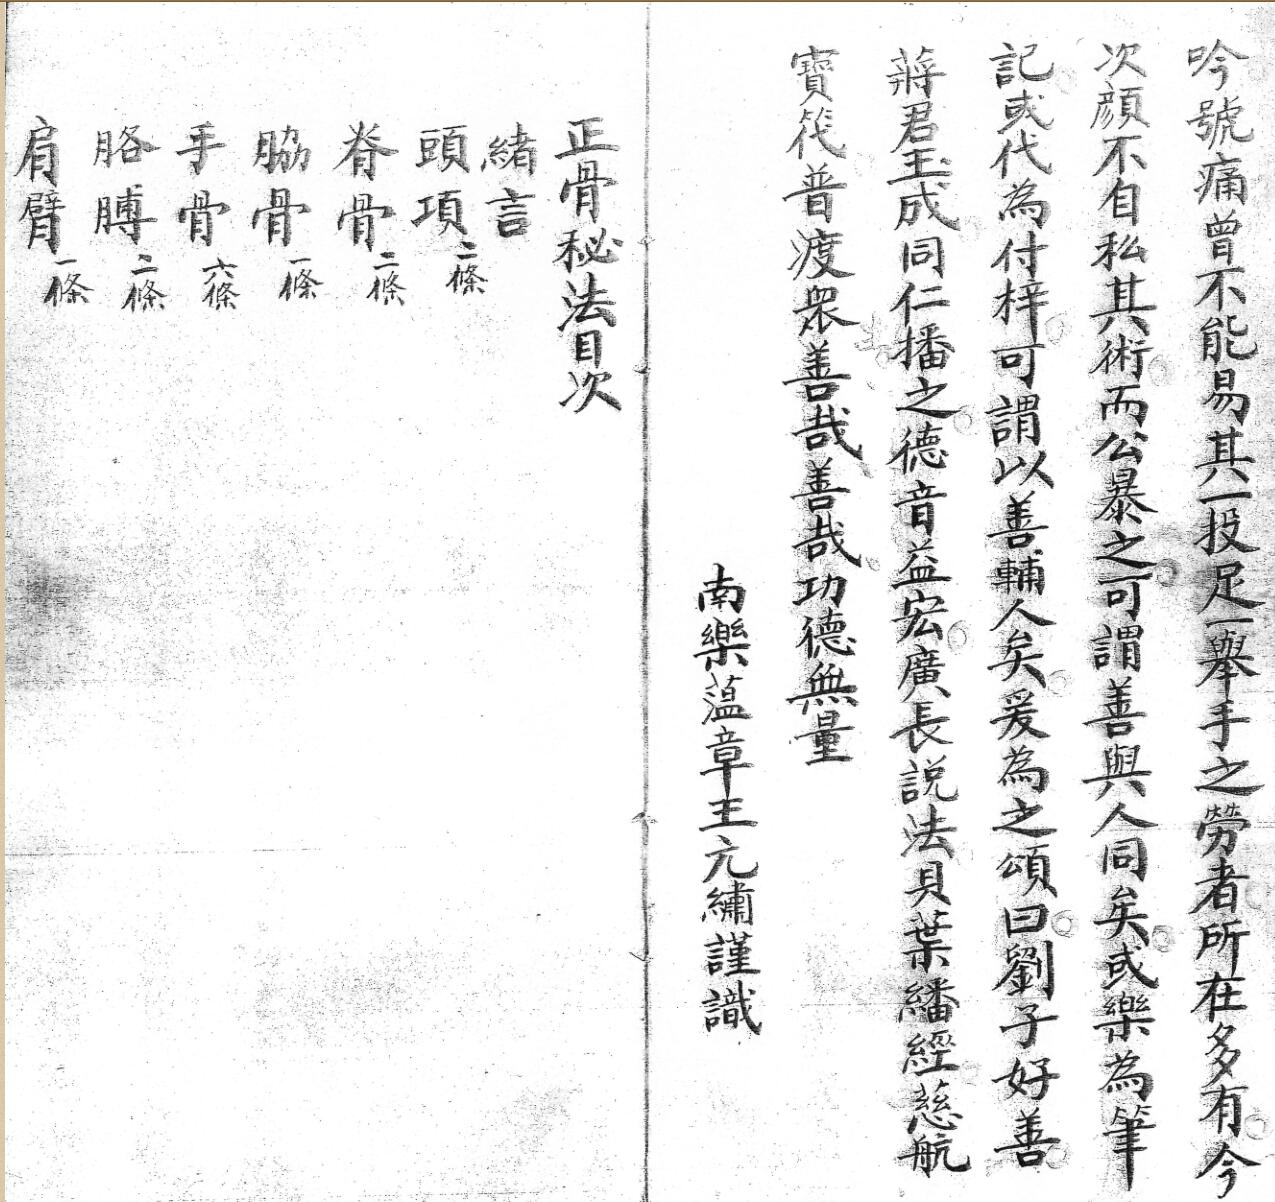 吟號痛曾不能易其一投足一舉手之勞者所在多有今
次顔不自私其術而公暴之可謂善與人同矣或樂為筆
記或代為付梓可謂以善輔人矣爰為之頌曰劉子好善
蔣君玉成同仁播之德音益宏廣長説法貝葉繙經慈航
寶筏普渡衆善哉善哉功德無量
南樂蕰章王元繡謹識
正骨秘法目次
緒言
頭項二條
脊骨二條
脇骨一條
手骨六條
胳膊二條
肩臂一條